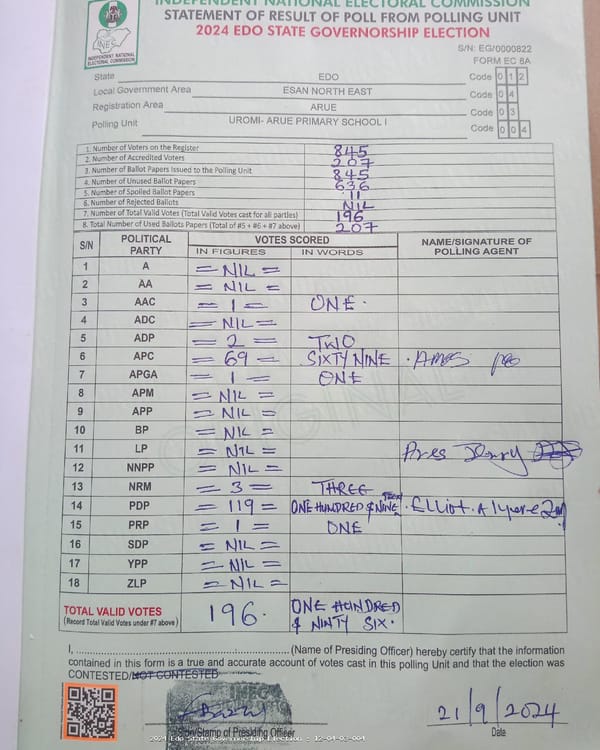 INDEPENDENT NATIONAL ELECTORAL COMMISSION
STATEMENT OF RESULT OF POLL FROM POLLING UNIT
2024 EDO STATE GOVERNORSHIP ELECTION
INEC
INDEPENDENT NATIONAL
ELECTORAL COMMISSION
S/N: EG/0000822
FORM EC 8A
State EDO Code 0 1 2
Local Government Area ESAN NORTH EAST Code 0 4
Registration Area ARUE Code 0 3
Polling Unit UROMI- ARUE PRIMARY SCHOOL I Code 0 0 4
1. Number of Voters on the Register 845
2. Number of Accredited Voters 207
3. Number of Ballot Papers Issued to the Polling Unit 845
4. Number of Unused Ballot Papers 636
5. Number of Spoiled Ballot Papers 11
6. Number of Rejected Ballots NIL
7. Number of Total Valid Votes (Total Valid Votes cast for all parties) 196
8. Total Number of Used Ballots Papers (Total of #5 + #6 + #7 above) 207
S/N POLITICAL PARTY VOTES SCORED NAME/SIGNATURE OF POLLING AGENT
IN FIGURES IN WORDS
1 A = NIL =
2 AA = NIL =
3 AAC = 1 = ONE.
4 ADC = NIL =
5 ADP = 2 = TWO
6 APC = 69 = SIXTY NINE
7 APGA = 1 = ONE
8 APM = NIL =
9 APP = NIL =
10 BP = NIL =
11 LP = NIL =
12 NNPP = NIL =
13 NRM = 3 = THREE
14 PDP = 119 = ONE HUNDRED & NINE TEEN
15 PRP = 1 = ONE
16 SDP = NIL =
17 YPP = NIL =
18 ZLP = NIL =
TOTAL VALID VOTES 196. ONE HUNDRED
(Record Total Valid Votes under #7 above) & NINTY SIX.
ORIGINAL
I, (Name of Presiding Officer) hereby certify that the information
contained in this form is a true and accurate account of votes cast in this polling Unit and that the election was
CONTESTED/NOT CONTESTED
21/9/2024
Sign/Stamp of Presiding Officer Date
2024 Edo State Governorship Election - 12-04-03-004